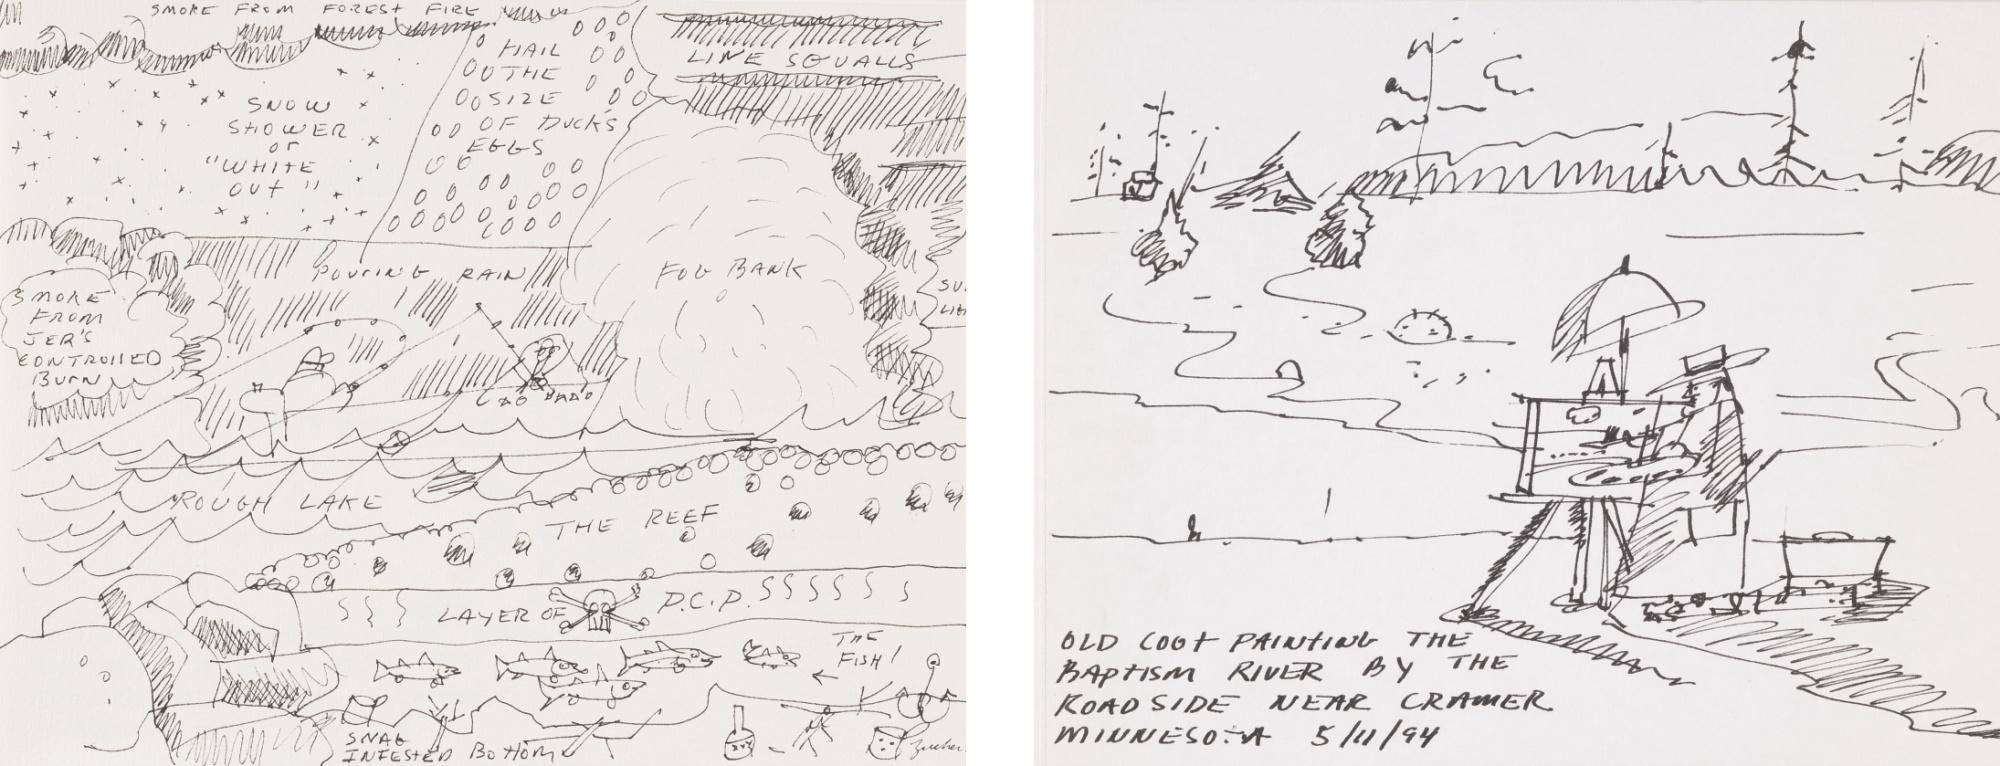 SMOKE FROM FOREST FIRE
HAIL
THE
SIZE
OF DUCK'S
EGGS
LINE SQUALLS
SNOW
SHOWER
or
"WHITE
OUT"
POURING RAIN
FOG BANK
SMOKE
FROM
JER'S
CONTROLLED
BURN
ROUGH LAKE
THE REEF
LAYER OF P.C.P.
THE
FISH!
SNAG
INFESTED BOTTOM
OLD COOT PAINTING THE
BAPTISM RIVER BY THE
ROADSIDE NEAR CRAMER
MINNESOTA 5/11/94